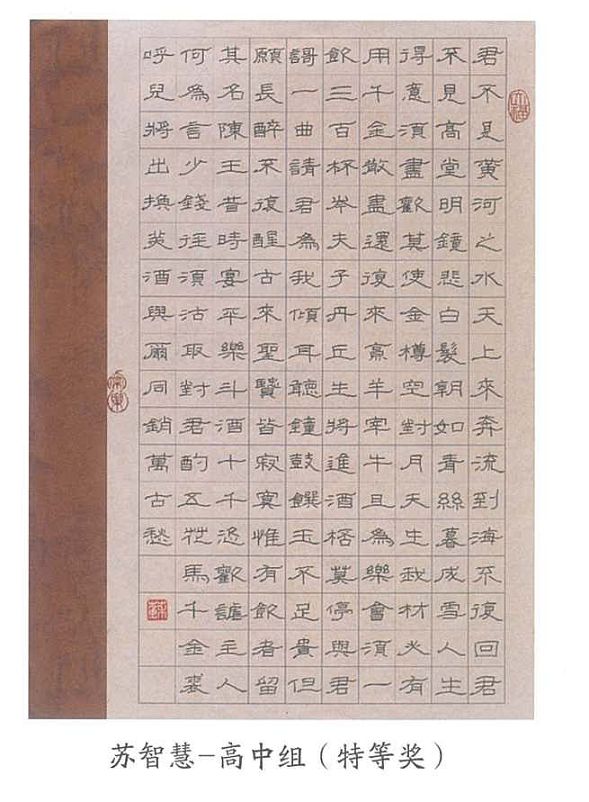 君不見黃河之水天上來奔流到海不復回君
不見高堂明鏡悲白髮朝如青絲暮成雪人生
得意須盡歡莫使金樽空對月天生我材必有
用千金散盡還復來烹羊宰牛且為樂會須一
飲三百杯岑夫子丹丘生將進酒桮莫停與君
謌一曲請君為我傾耳聽鐘鼓饌玉不足貴但
願長醉不復醒古來聖賢皆寂寞惟有飲者留
其名陳王昔時宴平樂斗酒十千恣歡謔主人
何為言少錢徑須沽取對君酌五花馬千金裘
呼兒將出換美酒與爾同銷萬古愁
苏智慧-高中组（特等奖）